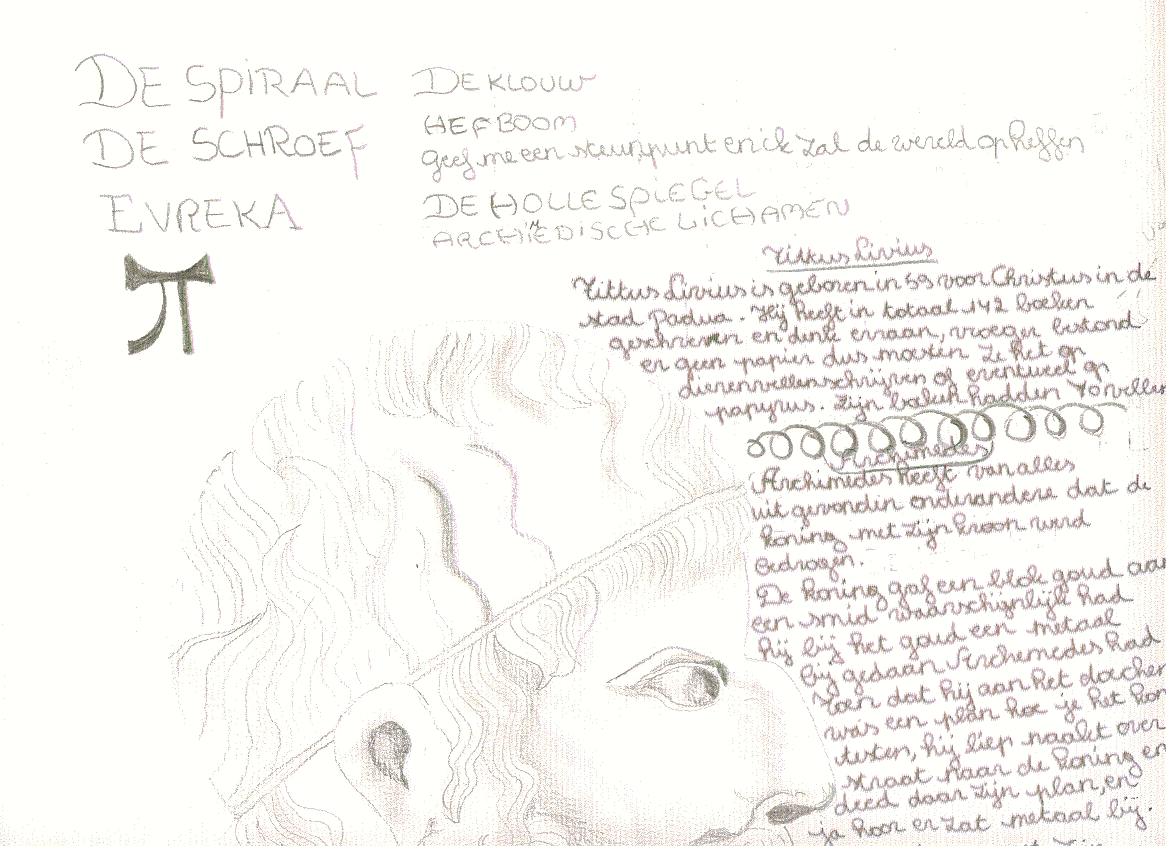 DE SPIRAAL
DE SCHROEF
EVREKA
π
DE KLOUW
HEFBOOM
geef me een steunpunt en ik zal de wereld opheffen
DE HOLLE SPIEGEL
ARCHIMEDISCHE LICHAMEN
Tittus Livius
Tittus Livius is geboren in 59 voor Christus in de
stad Padua. Hij heeft in totaal 142 boeken
geschreven en denk eraan, vroeger bestond
er geen papier dus moesten ze het op
dierenvellen schrijven of eventueel op
papyrus. Zijn boeken hadden 70 vellen
Archimedes
Archimedes heeft van alles
uit gevonden onderandere dat de
koning met zijn kroon werd
bedrogen.
De koning gaf een blok goud aan
een smid waarschijnlijk had
hij bij het goud een metaal
bij gedaan Archemedes had
toen dat hij aan het douchen
was een plan hoe je het kon
testen, hij liep naakt over
straat naar de koning en
deed daar zijn plan, en
ja hoor er zat metaal bij.